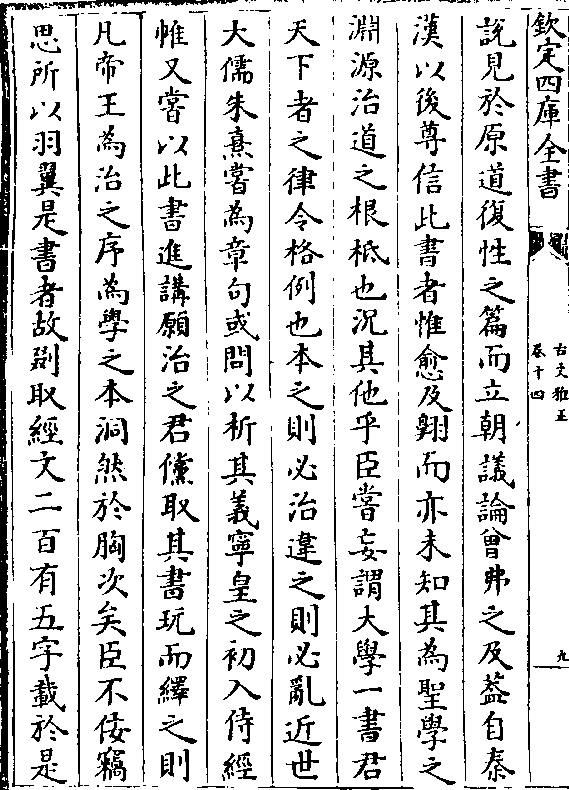 欽定四庫全書
古文雅正
卷十四
九
說見於原道復性之篇而立朝議論曾弗之及葢自秦
漢以後尊信此書者惟愈及翺而亦未知其為聖學之
淵源治道之根柢也況其他乎臣嘗妄謂大學一書君
天下者之律令格例也本之則必治違之則必亂近世
大儒朱熹嘗為章句或問以析其義寧皇之初入侍經
帷又嘗以此書進講願治之君儻取其書玩而繹之則
凡帝王為治之序為學之本洞然於胸次矣臣不佞竊
思所以羽翼是書者故剟取經文二百有五字載於是